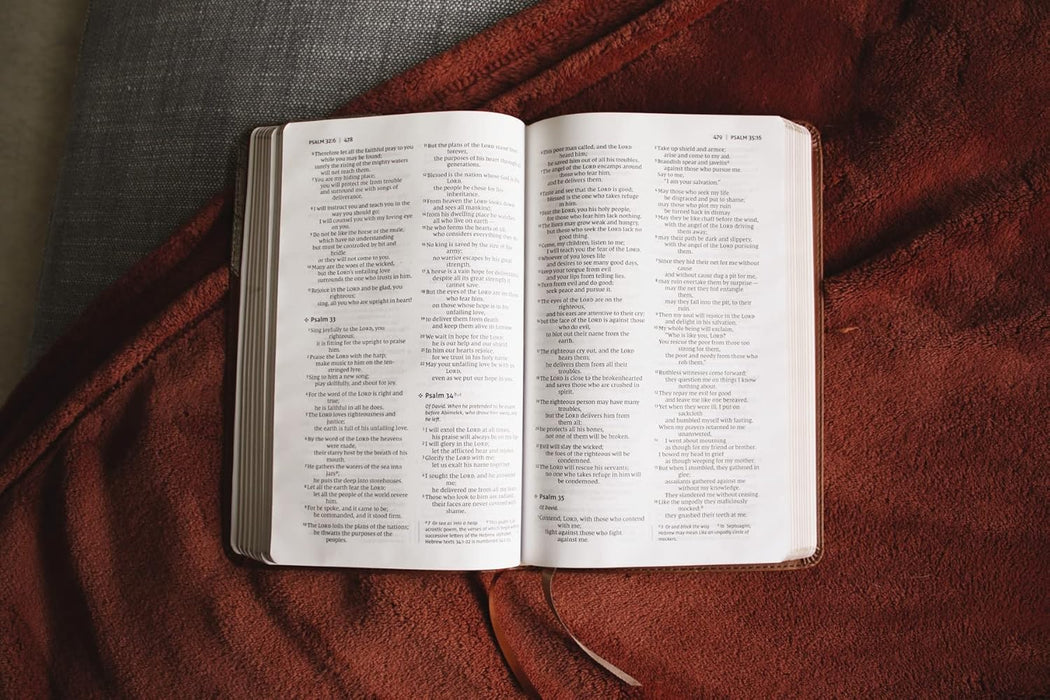 PSALM 32:6 | 478
⁶Therefore let all the faithful pray to you
while you may be found;
surely the rising of the mighty waters
will not reach them.
⁷You are my hiding place;
you will protect me from trouble
and surround me with songs of
deliverance.
⁸I will instruct you and teach you in the
way you should go;
I will counsel you with my loving eye
on you.
⁹Do not be like the horse or the mule,
which have no understanding
but must be controlled by bit and
bridle
or they will not come to you.
¹⁰Many are the woes of the wicked,
but the LORD's unfailing love
surrounds the one who trusts in him.
¹¹Rejoice in the LORD and be glad, you
righteous;
sing, all you who are upright in heart!
Psalm 33
¹Sing joyfully to the LORD, you
righteous;
it is fitting for the upright to praise
him.
²Praise the LORD with the harp;
make music to him on the ten-
stringed lyre.
³Sing to him a new song;
play skillfully, and shout for joy.
⁴For the word of the LORD is right and
true;
he is faithful in all he does.
⁵The LORD loves righteousness and
justice;
the earth is full of his unfailing love.
⁶By the word of the LORD the heavens
were made,
their starry host by the breath of his
mouth.
⁷He gathers the waters of the sea into
jars;
he puts the deep into storehouses.
⁸Let all the earth fear the LORD;
let all the people of the world revere
him.
⁹For he spoke, and it came to be;
he commanded, and it stood firm.
¹⁰The LORD foils the plans of the nations;
he thwarts the purposes of the
peoples.
¹¹But the plans of the LORD stand firm
forever,
the purposes of his heart through all
generations.
¹²Blessed is the nation whose God is the
LORD,
the people he chose for his
inheritance.
¹³From heaven the LORD looks down
and sees all mankind;
¹⁴from his dwelling place he watches
all who live on earth—
¹⁵he who forms the hearts of all,
who considers everything they do.
¹⁶No king is saved by the size of his
army;
no warrior escapes by his great
strength.
¹⁷A horse is a vain hope for deliverance;
despite all its great strength it
cannot save.
¹⁸But the eyes of the LORD are on those
who fear him,
on those whose hope is in his
unfailing love,
¹⁹to deliver them from death
and keep them alive in famine.
²⁰We wait in hope for the LORD;
he is our help and our shield.
²¹In him our hearts rejoice,
for we trust in his holy name.
²²May your unfailing love be with us,
LORD,
even as we put our hope in you.
Psalm 34
Of David. When he pretended to be insane
before Abimelek, who drove him away, and
he left.
¹I will extol the LORD at all times;
his praise will always be on my lips.
²I will glory in the LORD;
let the afflicted hear and rejoice.
³Glorify the LORD with me;
let us exalt his name together.
⁴I sought the LORD, and he answered
me;
he delivered me from all my fears.
⁵Those who look to him are radiant;
their faces are never covered with
shame.
7 Or sea as into a heap This psalm is an
acrostic poem, the verses of which begin with
successive letters of the Hebrew alphabet.
Hebrew texts 34:1-22 is numbered
479 | PSALM 35:16
⁶This poor man called, and the LORD
heard him;
he saved him out of all his troubles.
⁷The angel of the LORD encamps around
those who fear him,
and he delivers them.
⁸Taste and see that the LORD is good;
blessed is the one who takes refuge
in him.
⁹Fear the LORD, you his holy people,
for those who fear him lack nothing.
¹⁰The lions may grow weak and hungry,
but those who seek the LORD lack no
good thing.
¹¹Come, my children, listen to me;
I will teach you the fear of the LORD.
¹²Whoever of you loves life
and desires to see many good days,
¹³keep your tongue from evil
and your lips from telling lies.
¹⁴Turn from evil and do good;
seek peace and pursue it.
¹⁵The eyes of the LORD are on the
righteous,
and his ears are attentive to their cry;
¹⁶but the face of the LORD is against those
who do evil,
to blot out their name from the
earth.
¹⁷The righteous cry out, and the LORD
hears them;
he delivers them from all their
troubles.
¹⁸The LORD is close to the brokenhearted
and saves those who are crushed in
spirit.
¹⁹The righteous person may have many
troubles,
but the LORD delivers him from
them all;
²⁰he protects all his bones,
not one of them will be broken.
²¹Evil will slay the wicked;
the foes of the righteous will be
condemned.
²²The LORD will rescue his servants;
no one who takes refuge in him will
be condemned.
Psalm 35
Of David.
¹Contend, LORD, with those who contend
with me;
fight against those who fight
against me.
²Take up shield and armor;
arise and come to my aid.
³Brandish spear and javelin
against those who pursue me.
Say to me,
"I am your salvation."
⁴May those who seek my life
be disgraced and put to shame;
may those who plot my ruin
be turned back in dismay.
⁵May they be like chaff before the wind,
with the angel of the LORD driving
them away;
⁶may their path be dark and slippery,
with the angel of the LORD pursuing
them.
⁷Since they hid their net for me without
cause
and without cause dug a pit for me,
⁸may ruin overtake them by surprise—
may the net they hid entangle
them,
may they fall into the pit, to their
ruin.
⁹Then my soul will rejoice in the LORD
and delight in his salvation.
¹⁰My whole being will exclaim,
"Who is like you, LORD?
You rescue the poor from those too
strong for them,
the poor and needy from those who
rob them."
¹¹Ruthless witnesses come forward;
they question me on things I know
nothing about.
¹²They repay me evil for good
and leave me like one bereaved.
¹³Yet when they were ill, I put on
sackcloth
and humbled myself with fasting.
When my prayers returned to me
unanswered,
¹⁴I went about mourning
as though for my friend or brother.
I bowed my head in grief
as though weeping for my mother.
¹⁵But when I stumbled, they gathered in
glee;
assailants gathered against me
without my knowledge.
They slandered me without ceasing.
¹⁶Like the ungodly they maliciously
mocked;
they gnashed their teeth at me.
3 Or and block the way 16 Septuagint;
Hebrew may mean Like an ungodly circle of
mockers,